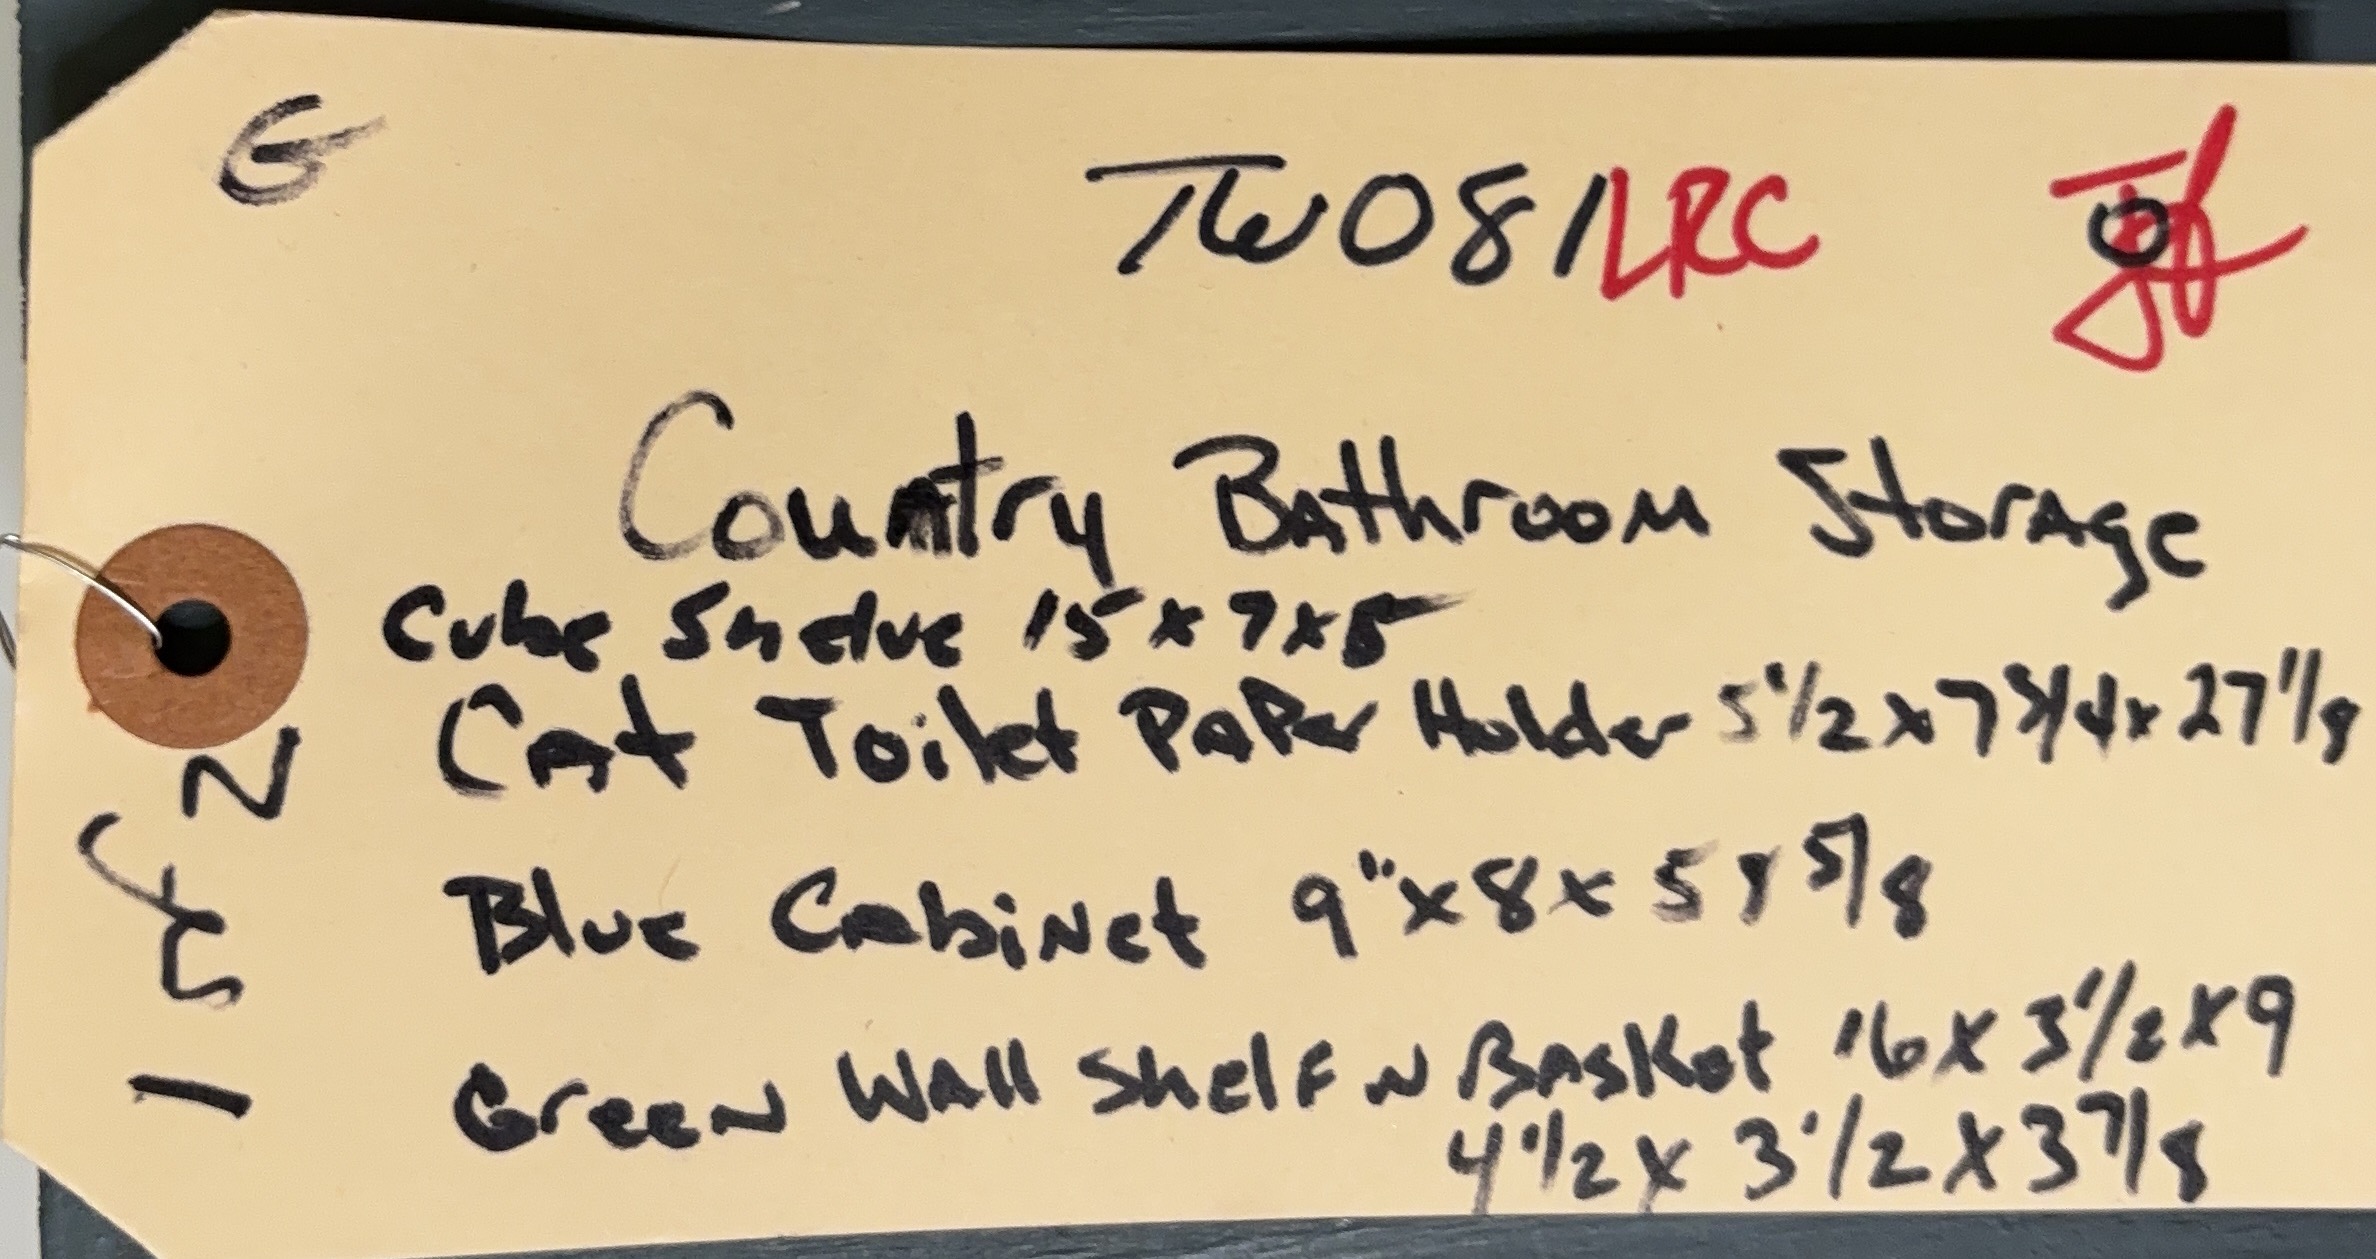 G
TW081LRC
Country Bathroom Storage
Cube Shelve 15x7x5
Cat Toilet Paper Holder 5 1/2 x 7 3/4 x 27 1/8
Blue Cabinet 9"x8x5 x 5/8
Green Wall Shelf N Basket 16 x 3 1/2 x 9
4 1/2 x 3 1/2 x 3 7/8